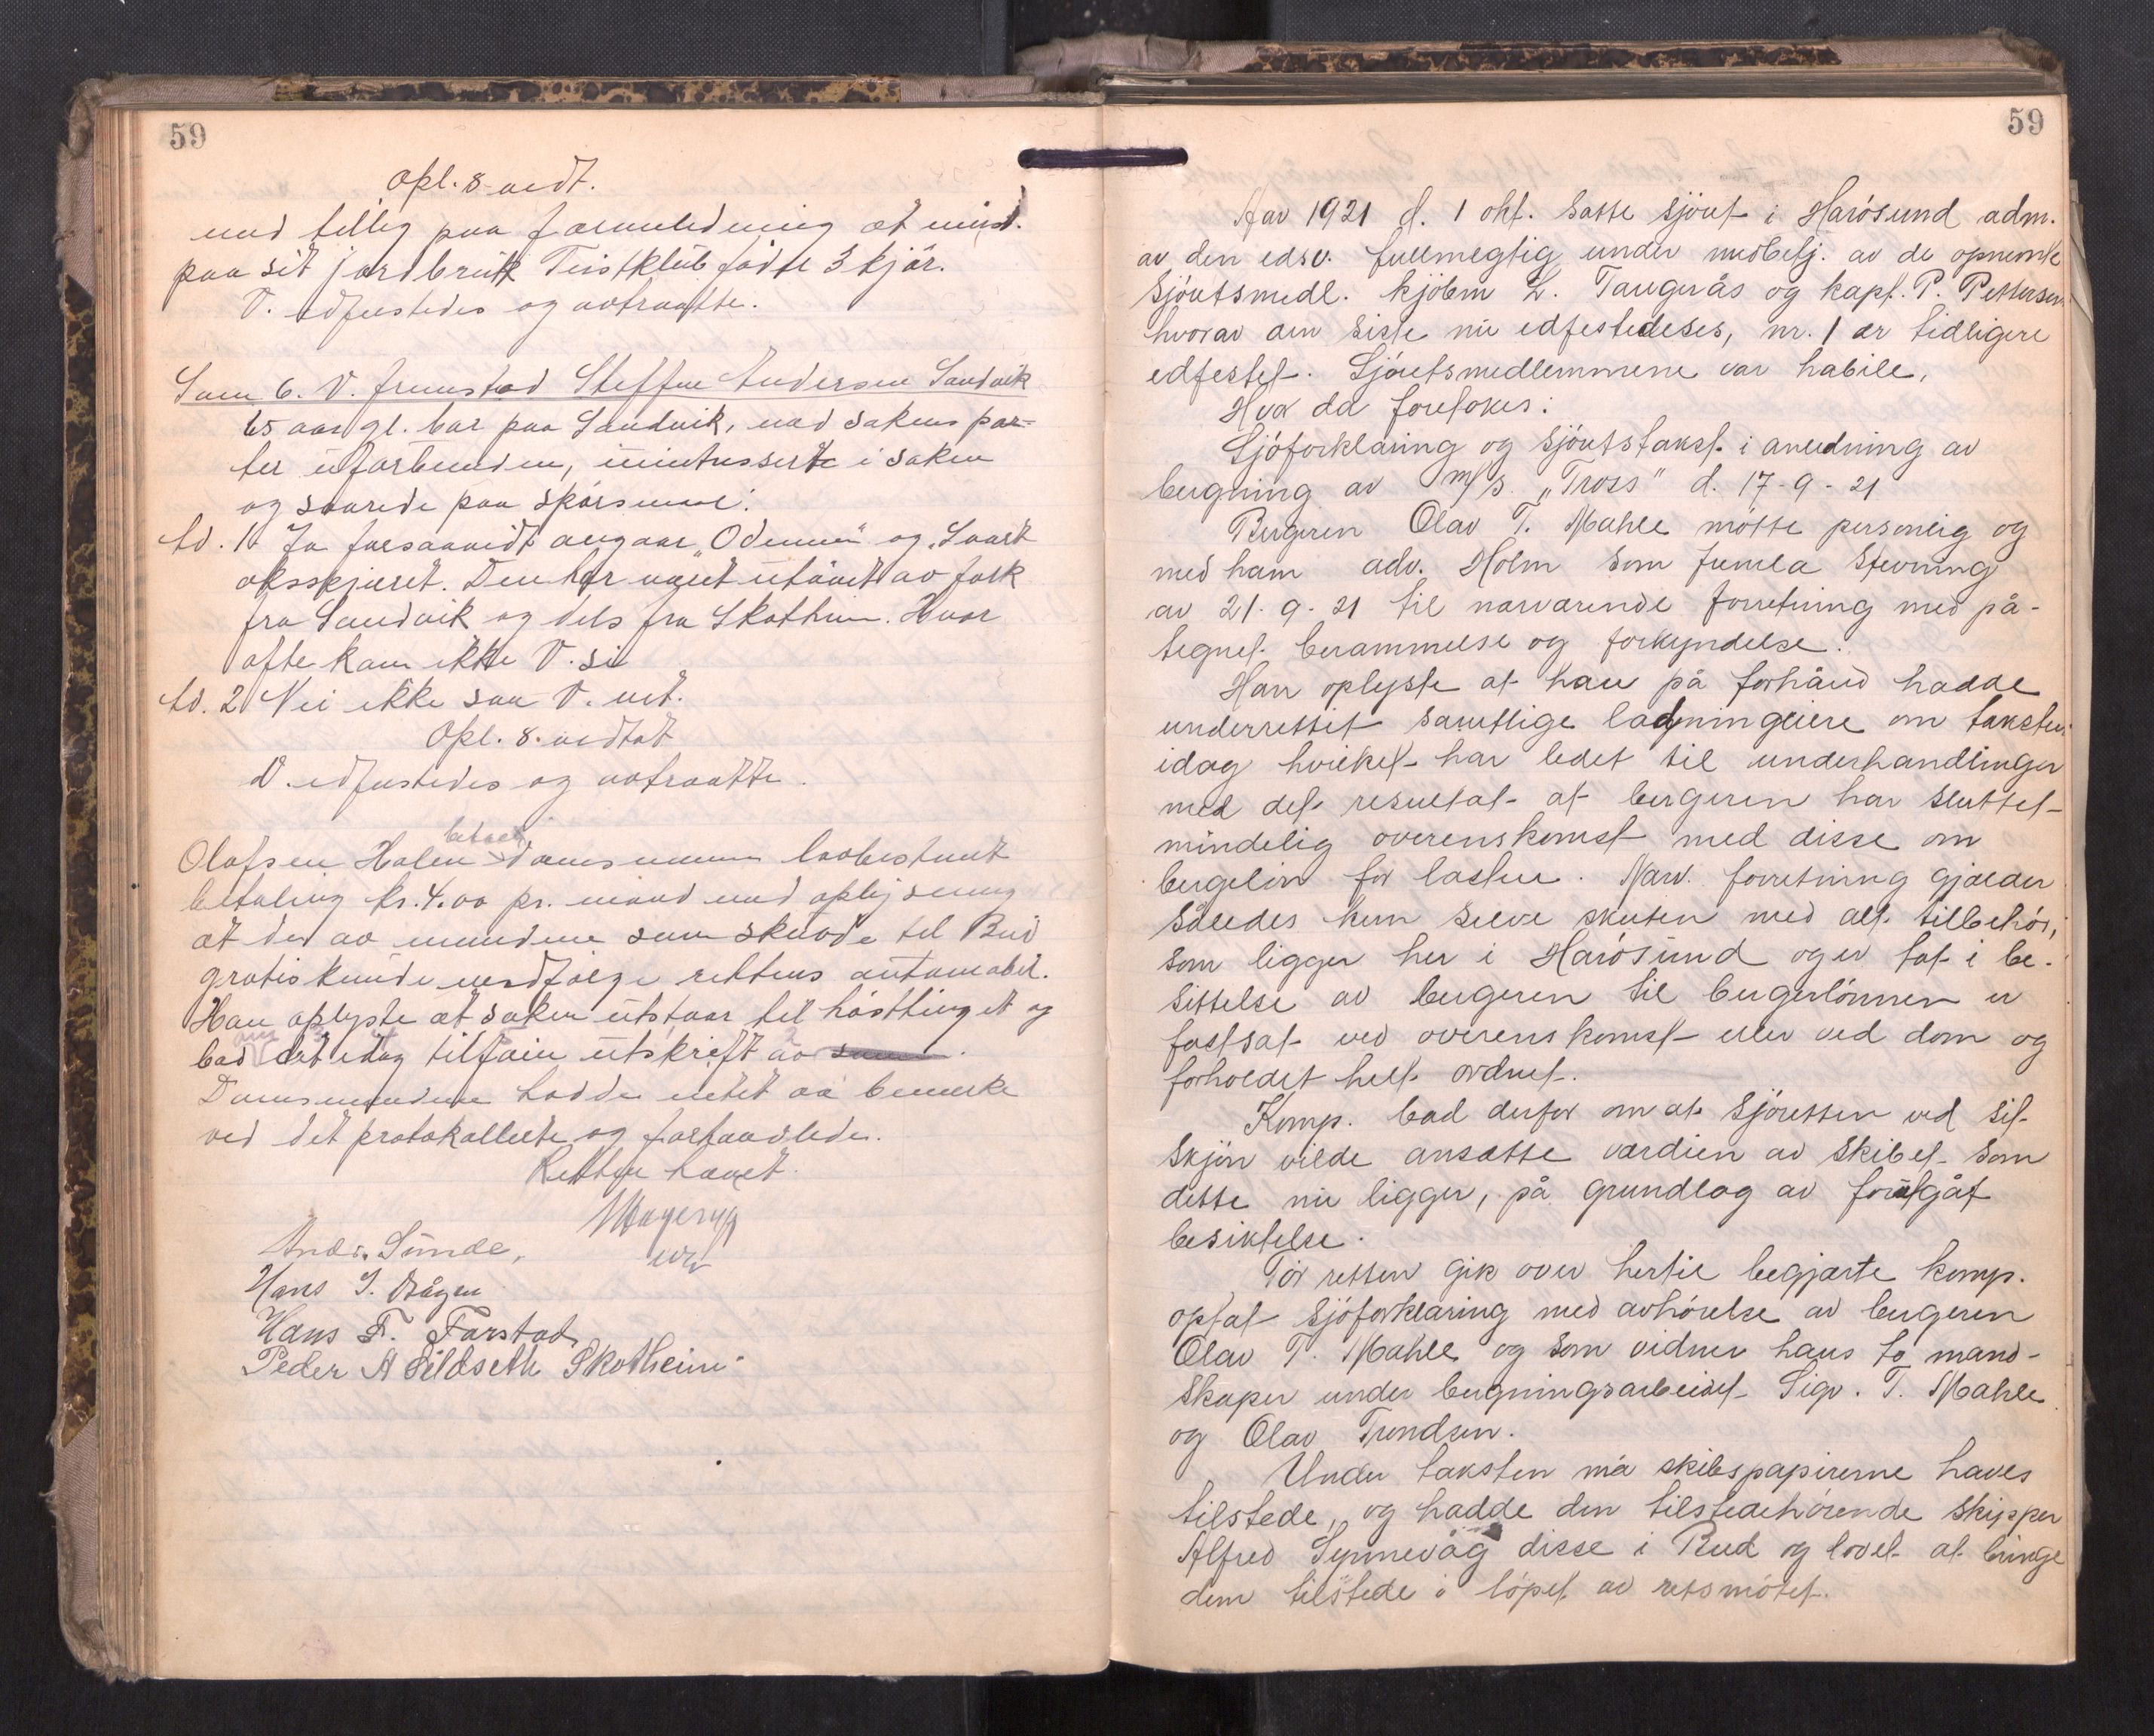 59
Opl. & vedt.
med tillig paa foranledning at mind.
paa sit jordbruk Teistklub fødte 3 kjør.
V. edfestedes og avtraatte.
Som 6. V. fremstod Steffen Andersen Sandvik
65 aar gl. bor paa Sandvik, ned sakens par-
ter uforbunden, uintressert i saken
og svarede paa spørsmaal:
Ad. 1 Ja forsaavidt angaar „Odemen" og „Svart
oksskjæret. Den har været utøvet av folk
fra Sandvik og dels fra Skothiem. Hvor
ofte kan ikke V. si
Ad. 2 Nei ikke saa V. vet.
Opl. & vedtat
V. edfestedes og avtraatte.
Olafsen Holen domsmænn lovbestemt
betaling kr. 4.00 pr. mand med oplysning
at de av mændene som skulde til Bud
gratis kunde medfølge rettens automobil.
Han oplyste at saken utstaar til høsttinget og
bad om det idag tilføiet utskrift av
Domsmændene hadde intet aa bemerke
ved det protokollerte og forhandlede.
Retten hævet.
Andr. Sunde,
Hans J. Vågen
Hans F. Farstad
Peder A Sildseth Skotheim
59
Aar 1921 d. 1 okt. satte sjöret i Harösund adm.
av den edsv. fullmegtig under medbetj. av de opnevnte
sjöretsmedl. kjöbm L. Tangerås og kapt. P. Pettersen
hvorav den siste nu edfestedeses, nr. 1 er tidligere
edfestet. Sjöretsmedlemmene var habile.
Hvor da foretokes:
Sjöforklaring og sjöretstakst i anledning av
bergning av m/s. „Tross" d. 17-9-21
Bergeren Olav T. Mahle mötte personlig og
med ham adv. Holm som fremla stevning
av 21-9-21 til nærværende forretning med på-
tegnet berammelse og forkyndelse.
Han oplyste at han på forhånd hadde
underrettet samtlige ladningeiere om taksten
idag hvilket har ledet til underhandlinger
med det resultat at bergeren har sluttet
mindelig overenskomst med disse om
bergelön for lasten. Nærv. forretning gjælder
således kun selve skuten med alt tilbehör,
som ligger her i Harösund og er tat i be-
sittelse av bergeren til bergerlönnen er
fastsat ved overenskomst eller ved dom og
forholdet helt ordnet.
Komp. bad derfor om at sjöretten ved sit
skjön vilde ansætte værdien av skibet som
dette nu ligger, på grundlag av foretgåt
besiktelse.
För retten gik over hertil begjærte komp.
optat sjöforklaring med avhörelse av bergeren
Olav T. Mahle og som vidner hans to mand-
skaper under bergningsarbeidet Sigv. T. Mahle
og Olav Trondsen.
Under taksten må skibspapirerne haves
tilstede, og hadde den tilstedehörende skipper
Alfred Synnevåg disse i Bud og lovet at bringe
dem tilstede i löpet av retsmötet.